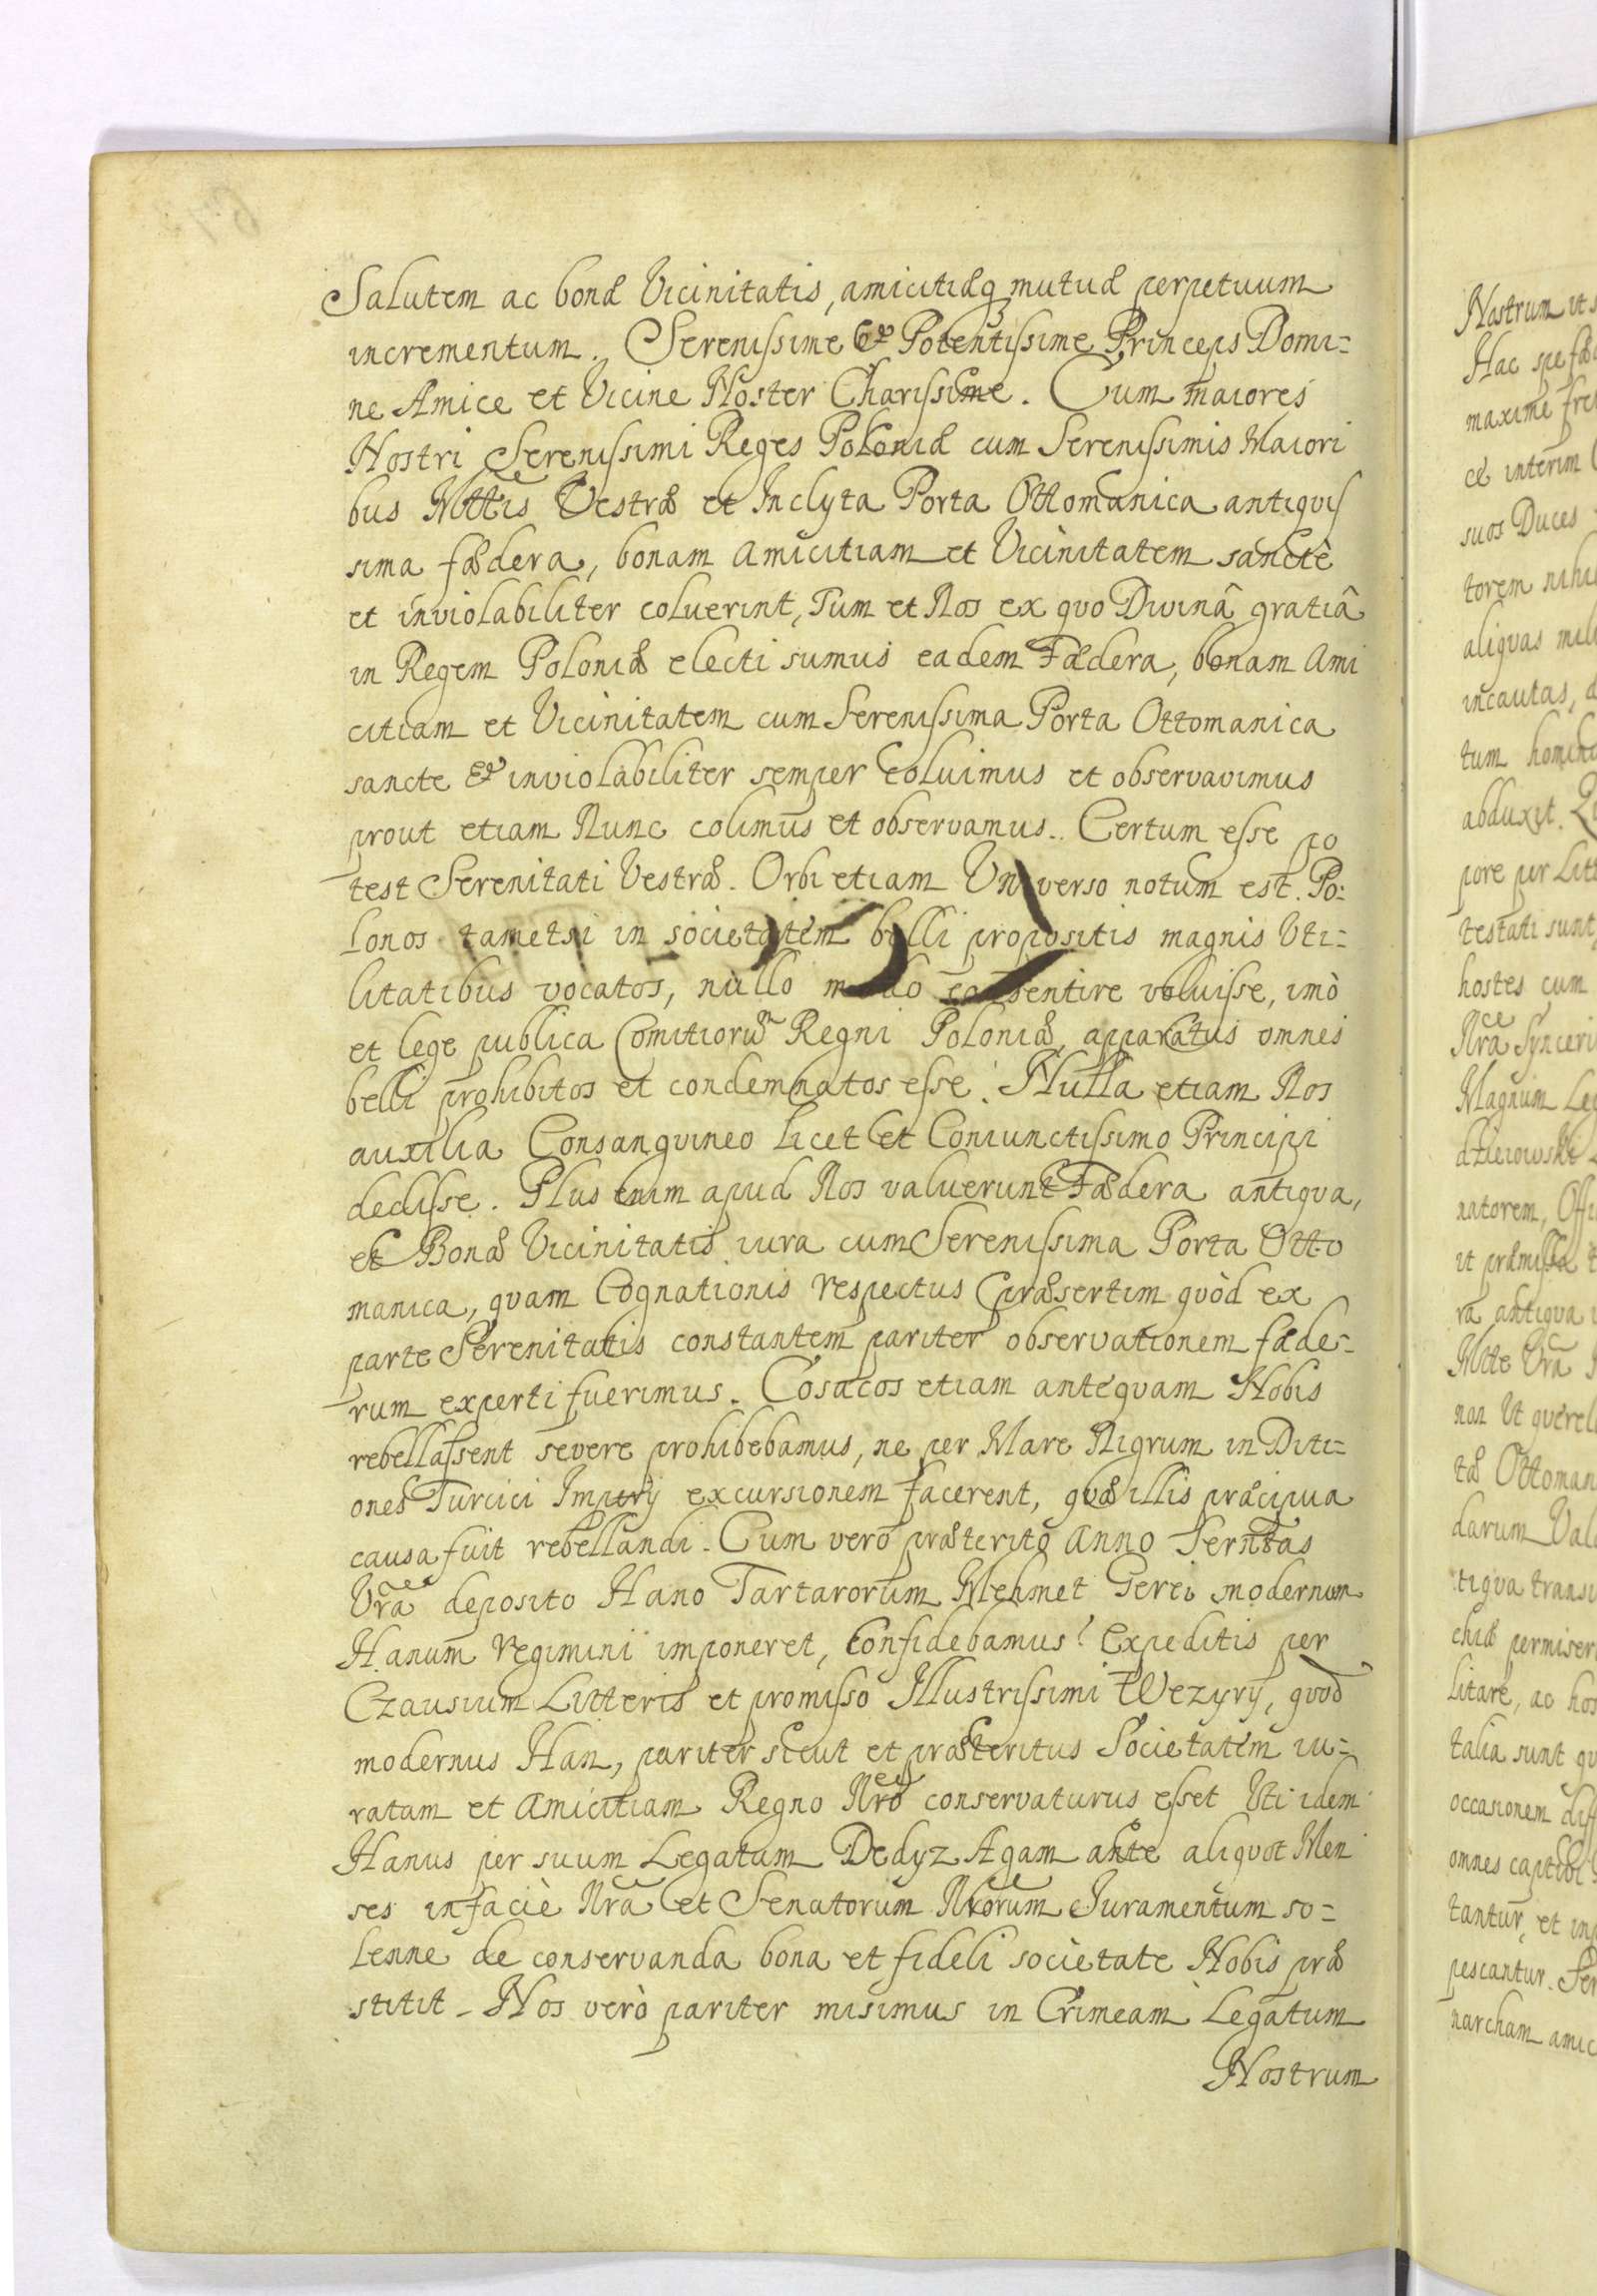 Salutem ac bonæ Vicinitatis, amicitiæq mutuæ perpetuum
incrementum. Serenissime & Potentissime Princeps Domi=
ne Amice et Vicine Noster Charissime. Cum maiores
Nostri Serenissimi Reges Poloniæ cum Serenissimis Maiori
bus Mttis Vestræ et Inclyta Porta Ottomanica antiquis
sima fædera, bonam amicitiam et Vicinitatem sanctè
et inviolabiliter coluerint, Tum et Nos ex quo Divinâ gratiâ
in Regem Poloniæ electi sumus eadem Fædera, bonam Ami
citiam et Vicinitatem cum Serenissima Porta Ottomanica
sancte & inviolabiliter semper coluimus et observavimus
prout etiam Nunc colimus et observamus. Certum esse po
test Serenitati Vestræ. Orbi etiam Universo notum est. Po:
lonos tametsi in societatem belli propositis magnis Uti=
litatibus vocatos, nullo modo consentire voluisse, imò
et lege publica Comitiorum Regni Poloniæ, apparatus omnes
belli prohibitos et condemnatos esse. Nulla etiam Nos
auxilia Consanguineo licet et Coniunctissimo Principi
dedisse. Plus enim apud Nos valuerunt Fædera antiqua,
et Bonæ Vicinitatis iura cum Serenissima Porta Otto
manica, quam Cognationis respectus præsertim quòd ex
parte Serenitatis constantem pariter observationem fæde=
rum experti fuerimus. Cosacos etiam antequam Nobis
rebellassent severe prohibebamus, ne per Mare Nigrum in Diti=
ones Turcici Imperij excursionem facerent, quæ illis præcipua
causa fuit rebellandi. Cum vero præterito Anno Serntas
Vra deposito Hano Tartarorum Mehmet Gerei modernum
Hanum regimini imponeret, Confidebamus expeditis per
Czausium Litteris et promisso Illustrissimi Wezyrij, quod
modernus Han, pariter sicut et præteritus Societatem iu=
ratam et Amicitiam Regno Nro conservaturus esset Uti idem
Hanus per suum Legatum Dedyz Agam ante aliquot Men
ses in facie Nra et Senatorum Nrorum Juramentum so=
lenne de conservanda bona et fideli societate Nobis præ
stitit. Nos verò pariter misimus in Crimeam Legatum
Nostrum